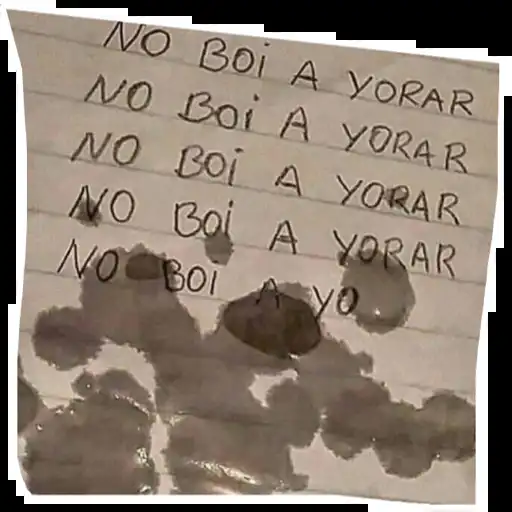 NO BOi A YORAR
NO BOi A YORAR
NO BOi A YORAR
NO BOi A YORAR
NO BOI A YO